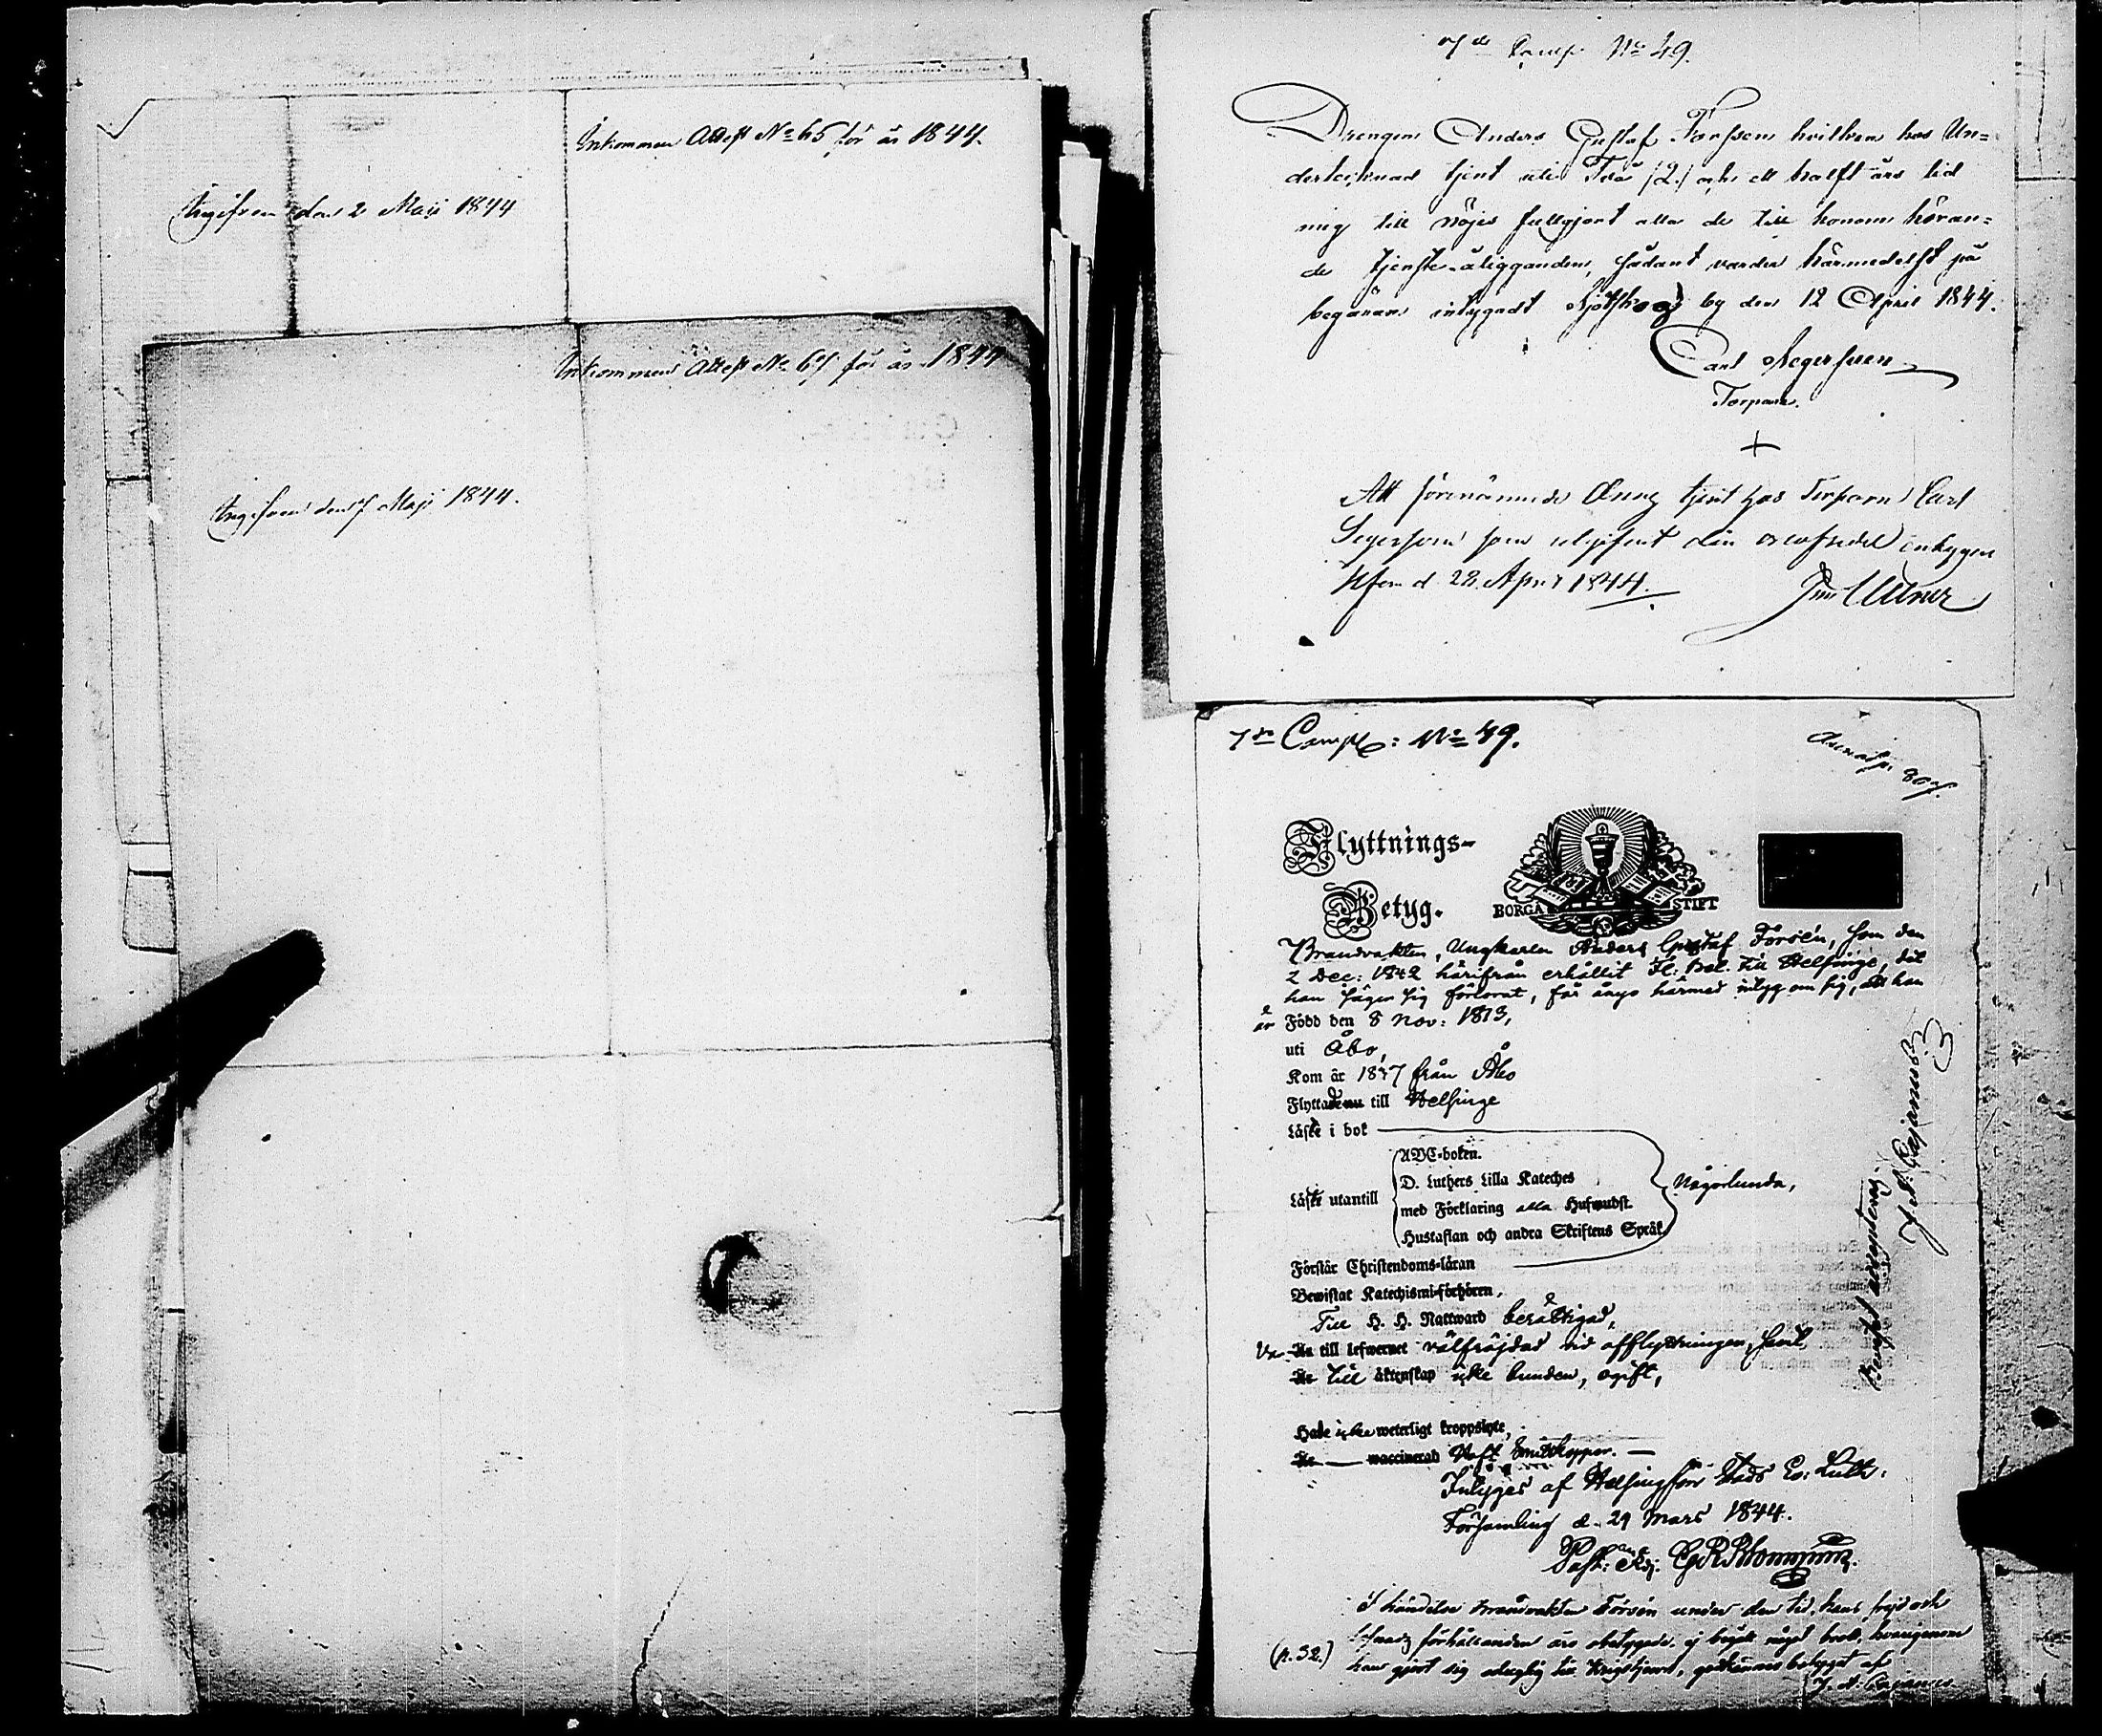 Inkommen Attest No 65 för år 1844.
Ingifven den 2 Maji 1844
Inkommen Attest No 67 för år 1844
Ingifven den 7 Maji 1844.
7de Comp No 49.
Drengen Anders Gustaf Forssen hvilken hos Un=
dertecknad tjent uti Två /2/ och ett halft års tid
mig till nöjes fullgjort alla de till honom höran=
de tjenste-åligganden, sådant varder härmedelst på
begäran intygadt by den 12 April 1844.
Carl Segersven
Torpare.
+
Att förenämnde dräng tjent hos Torparn Carl
Segersven som utgifvit den intygar
d 22 April 1844.
7de Comp: No 49.
Flyttnings-
Betyg.
BORGÅ STIFT
Brandvakten, Ungkarlen Anders Gustaf Forsén, som den
2 Dec: 1842 härifrån erhållit Fl: Bet. till Helsinge, det
han säger sig förlorat, får ånyo härmed intyg om sig, att han
är Född den 8 Nov: 1813,
uti Åbo,
Kom år 1837 från Åbo
Flyttade till Helsinge
Läste i bok
ABC-boken.
D. Luthers Lilla Kateches
Läste utantill
med Förklaring alla Hufwudst.
Någorlunda,
Hustaflan och andra Skriftens Språk
Förstår Christendoms-läran
Bewistat Katechismi-förhören,
Till H. H. Nattward berättigad,
Var till lefwernet välfrejdad vid afflyttningen, samt
till äktenskap icke bunden, ogift,
Hade icke weterligt kroppslyte,
waccinerad Haft Smittkoppor.
Intygas af Helsingfors Stads Ev: Luth:
Församling d. 29 Mars 1844.
I händelse Brandvakten Forsén under den tid, hans frejd och
förhållanden äro obetygade, ej begått något brott, hvarigenom
(p. 32.)
han gjort sig oduglig till krigstjenst, godkännes betyget af
J. A. Cajanus
Betyget accepteras
J. A. Cajanus